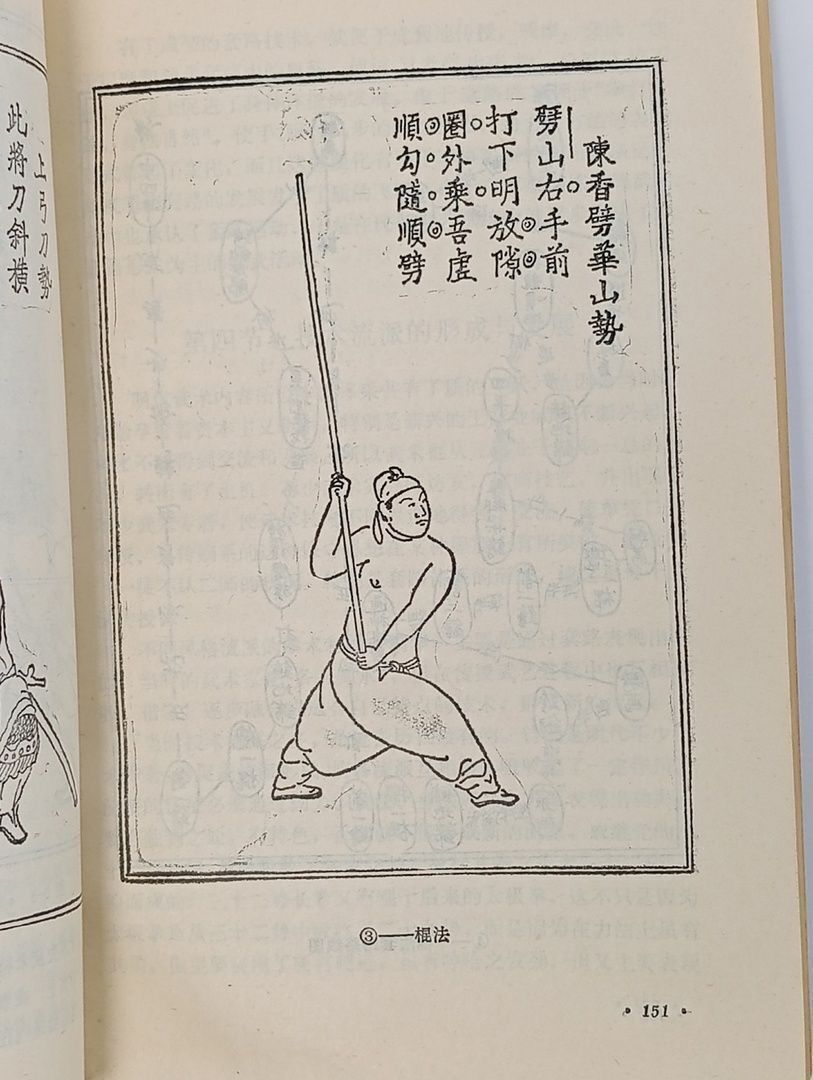 上弓刀勢
此將刀斜橫
陳香劈華山勢
劈山右手前
打下明放隙
圈外乘吾虛
順勾隨順劈
③——棍法
· 151 ·